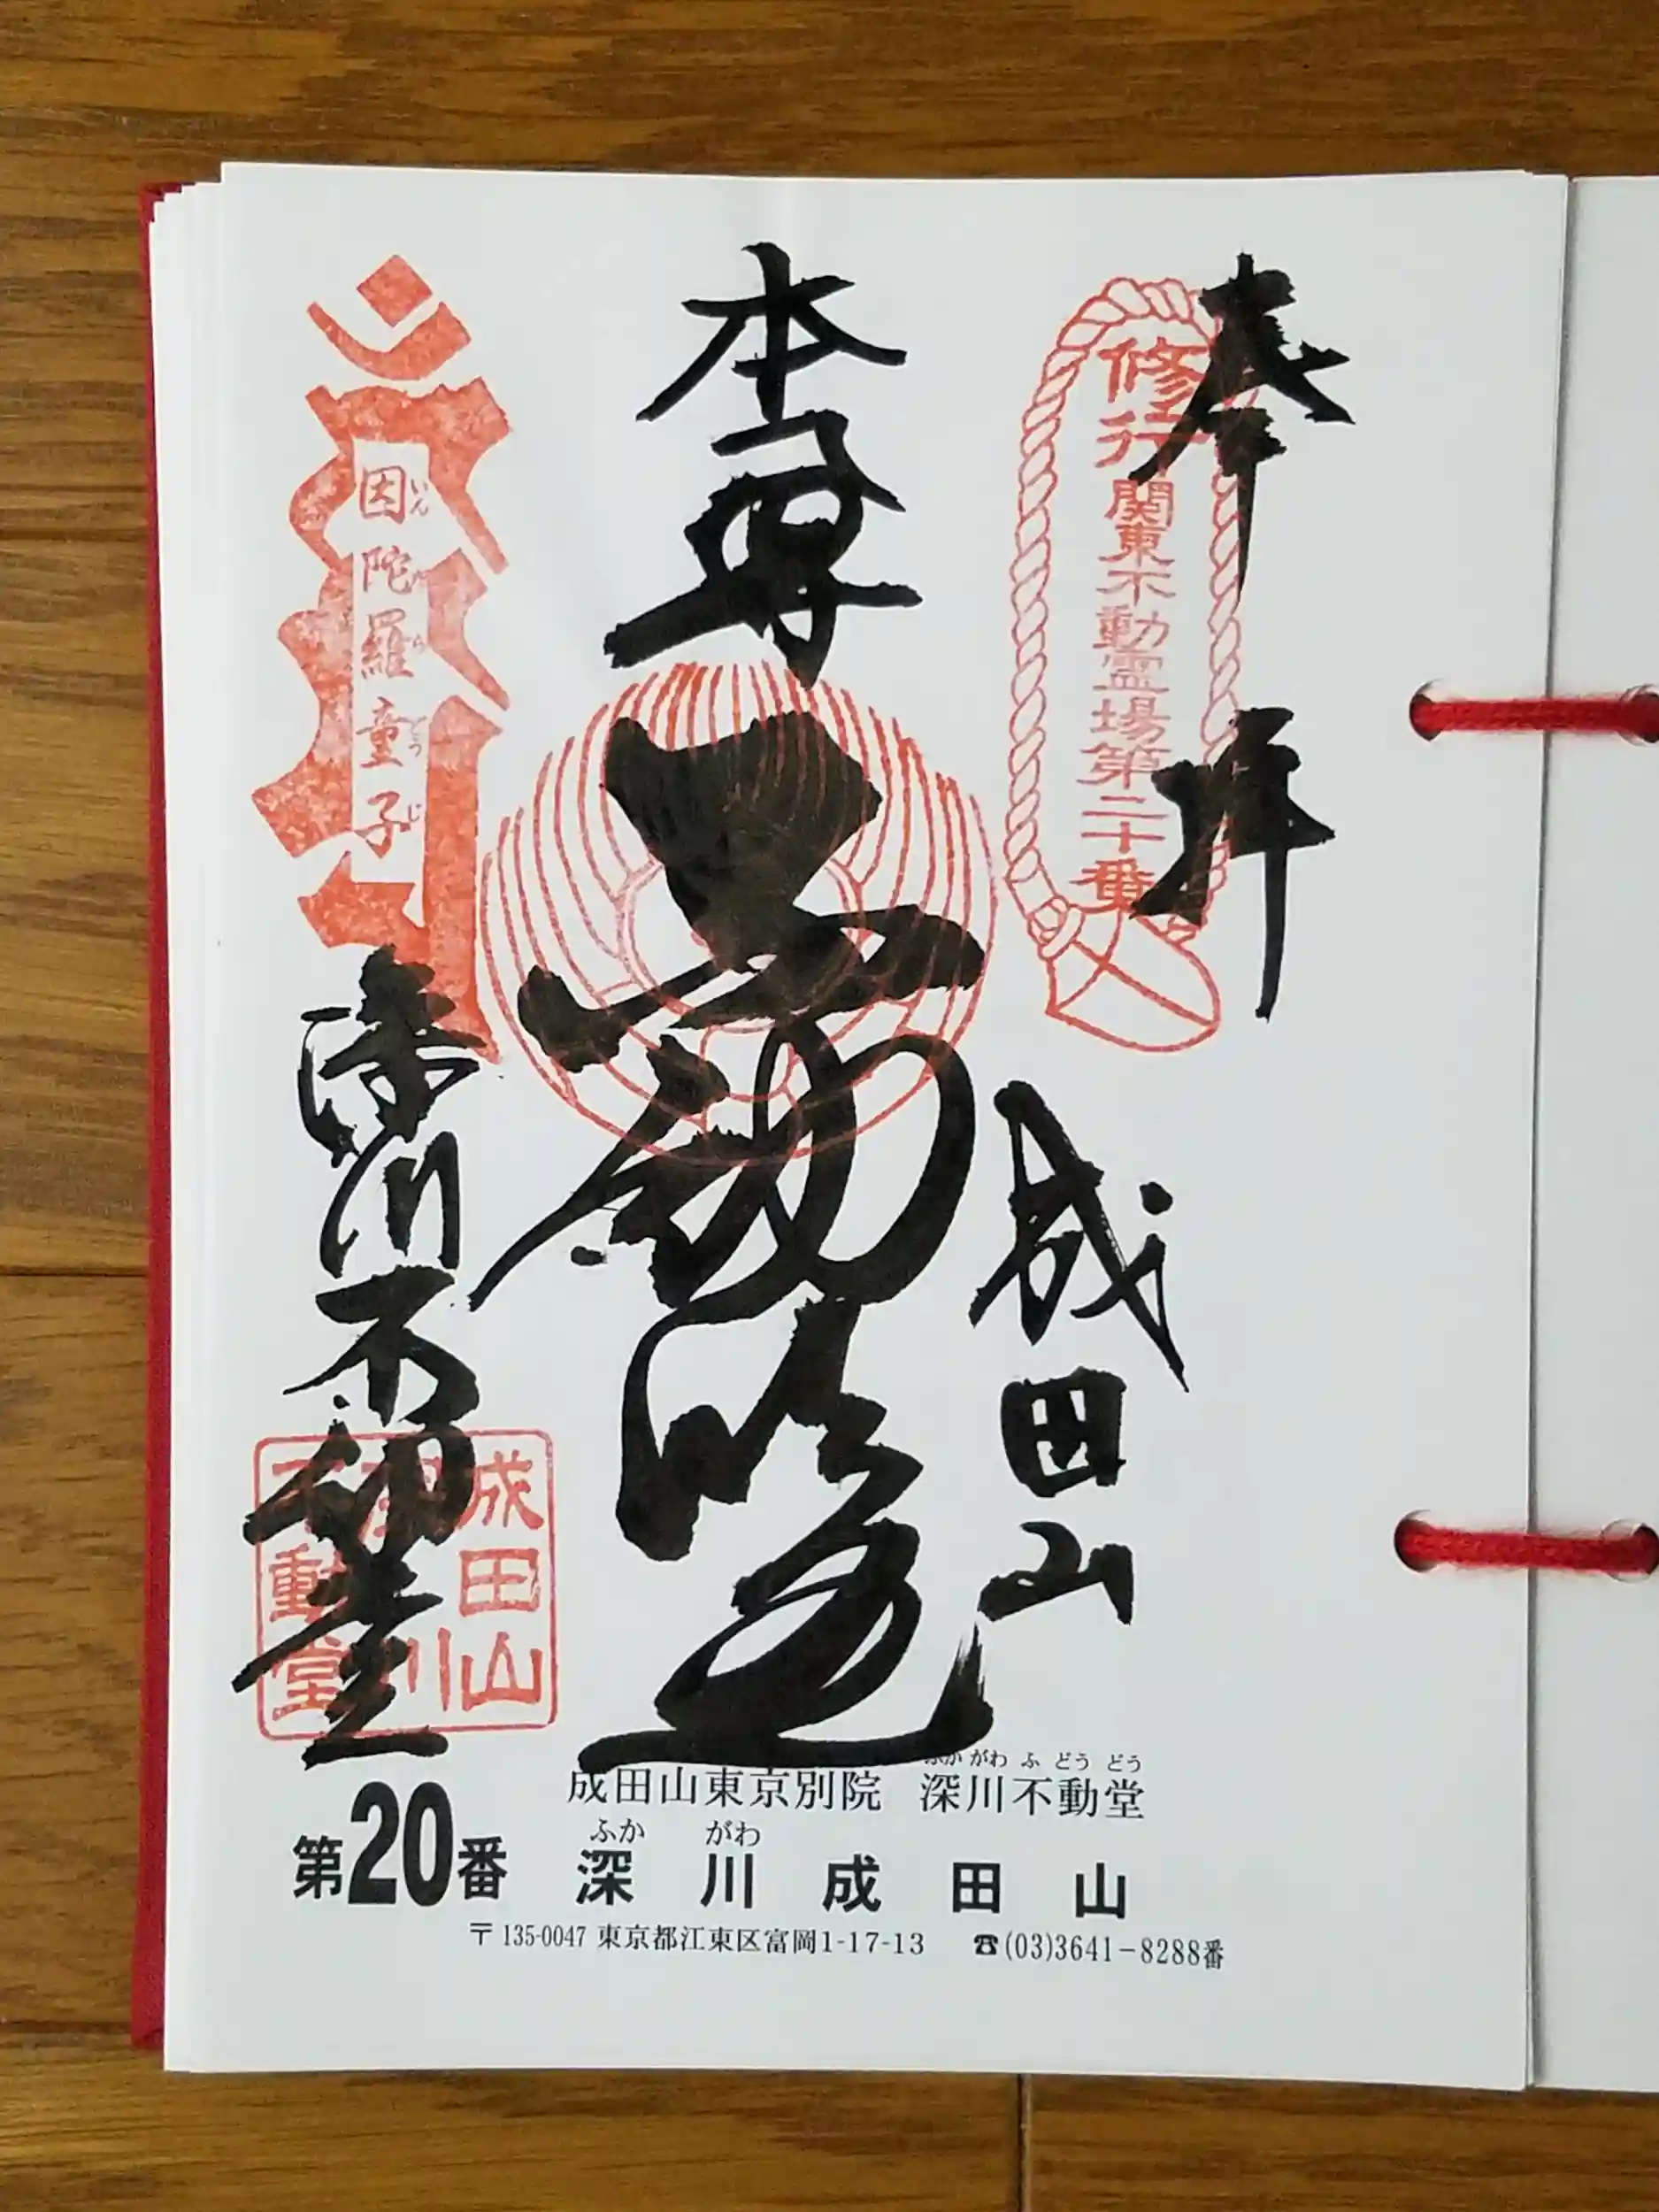 奉拝
修行関東不動霊場第二十番
成田山
本尊
不動明王
因陀羅童子
いんだらどうじ
深川不動堂
成田山
深川
不動堂
ふかがわふどうどう
成田山東京別院 深川不動堂
ふかがわ
第20番 深川成田山
〒135-0047 東京都江東区富岡1-17-13 ☎(03)3641-8288番